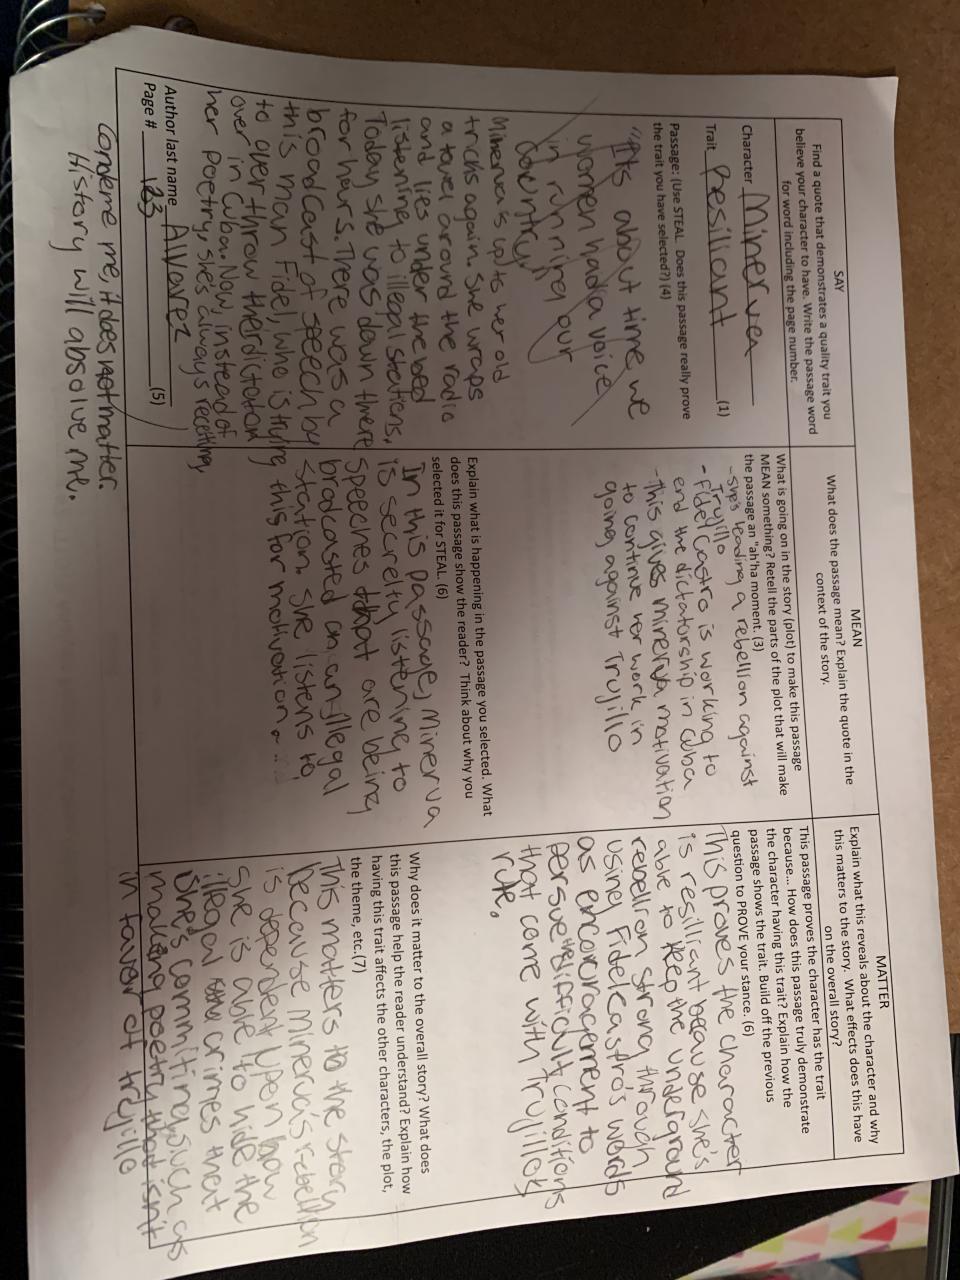 SAY
Find a quote that demonstrates a quality trait you
believe your character to have. Write the passage word
for word including the page number.
Character Minerva
Trait Resiliant (1)
Passage: (Use STEAL. Does this passage really prove
the trait you have selected?) (4)
"It's about time we
women had a voice
in running our
country."
Minerva is up to her old
tricks again. She wraps
a towel around the radio
and lies under the bed
listening to illegal stations.
Today she was down there
for hours. There was a
broadcast of speech by
this man Fidel, who is trying
to over throw their dictator
over in Cuba. Now, instead of
her poetry, she's always reciting,
Author last name Alvarez
Page # 123 (5)
Condeme me, it does not matter.
History will absolve me.
MEAN
What does the passage mean? Explain the quote in the
context of the story.
What is going on in the story (plot) to make this passage
MEAN something? Retell the parts of the plot that will make
the passage an "ah'ha moment. (3)
-She's leading a rebellion against
Trujillo
- Fidel Castro is working to
end the dictatorship in cuba
-This gives minerva motivation
to continue her work in
going against Trujillo
Explain what is happening in the passage you selected. What
does this passage show the reader? Think about why you
selected it for STEAL. (6)
In this passage, Minerva
is secretly listening to
speeches that are being
bradcasted on an illegal
station. She listens to
this for motivation.
MATTER
Explain what this reveals about the character and why
this matters to the story. What effects does this have
on the overall story?
This passage proves the character has the trait
because... How does this passage truly demonstrate
the character having this trait? Explain how the
passage shows the trait. Build off the previous
question to PROVE your stance. (6)
This proves the character
is resilliant because she's
able to keep the underground
rebellion strong through
using Fidel Castro's words
as encouragement to
persue the difficult conditions
that came with Trujillo's
rule.
Why does it matter to the overall story? What does
this passage help the reader understand? Explain how
having this trait affects the other characters, the plot,
the theme, etc.(7)
This matters to the story
because Minerva's rebellion
is dependent upon how
she is able to hide the
illegal crimes that
She's committing such as
making poetry that isn't
in favor of trujillo